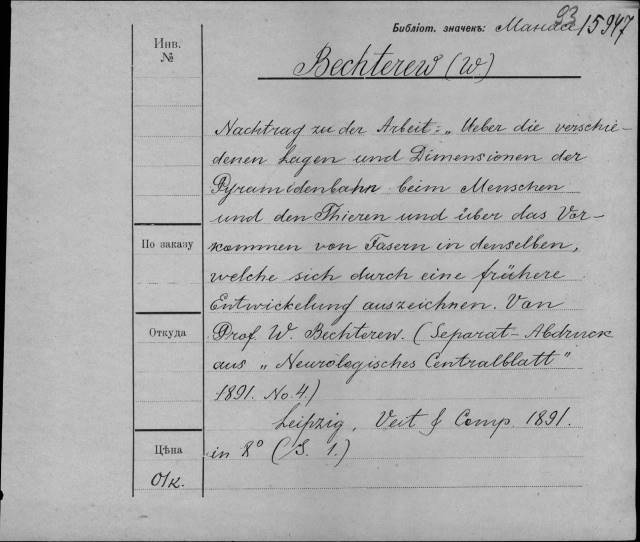 93
Библіот. значекъ: Манасе 15947
Инв.
№
Bechterew (W.)
Nachtrag zu der Arbeit: „Ueber die verschie-
denen Lagen und Dimensionen der
Pyramidenbahn beim Menschen
und den Thieren und über das Vor-
kommen von Fasern in denselben,
welche sich durch eine frühere
Entwickelung auszeichnen. Von
Prof. W. Bechterew. (Separat-Abdruck
aus „Neurologisches Centralblatt"
1891. No. 4.)
Leipzig, Veit & Comp. 1891.
in 8° (S. 1.)
По заказу
Откуда
Цѣна
О/к.